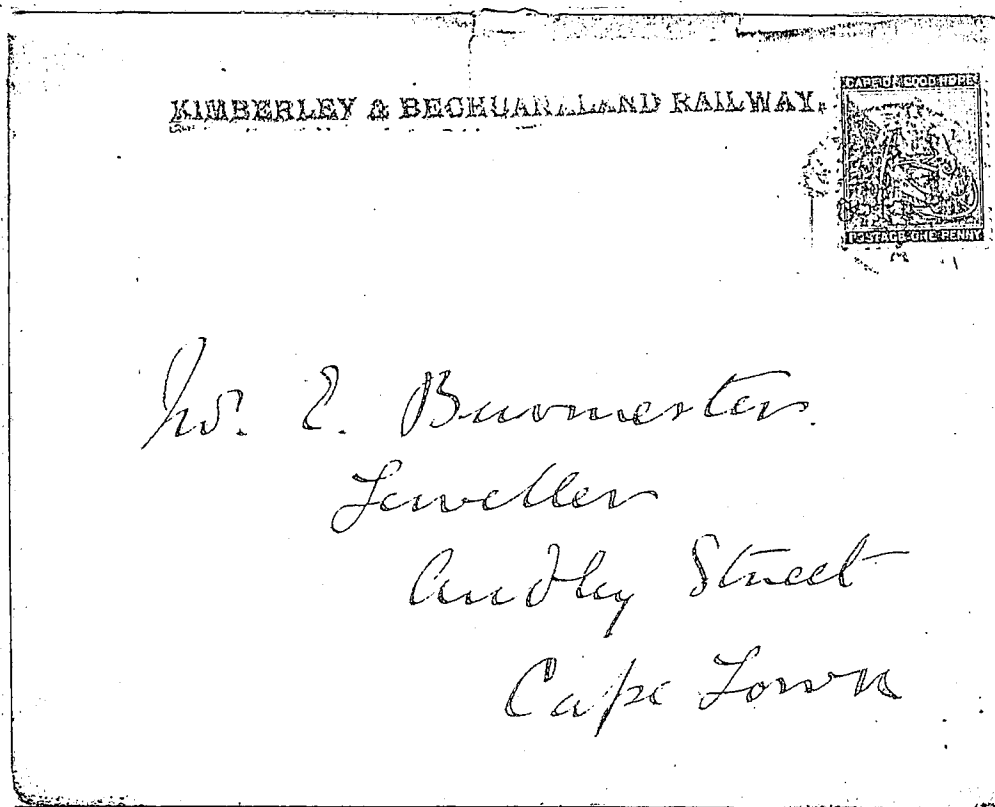 KIMBERLEY & BECHUANALAND RAILWAY.
CAPE OF GOOD HOPE
POSTAGE ONE PENNY
Mr. E. Burmester.
Jeweller
Audley Street
Cape Town